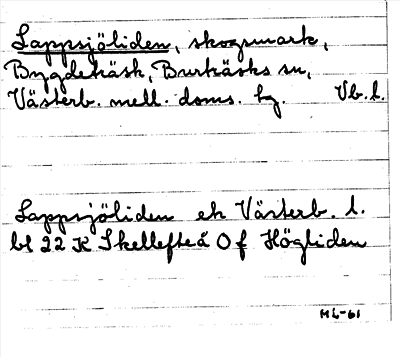 Lappsjöliden, skogsmark,
Bygdeträsk, Burträsks sn,
Västerb. mell. doms. hg. Vb. l.
Lappsjöliden ek Västerb. l.
bl 22 K Skellefteå O f Högliden
ML-61